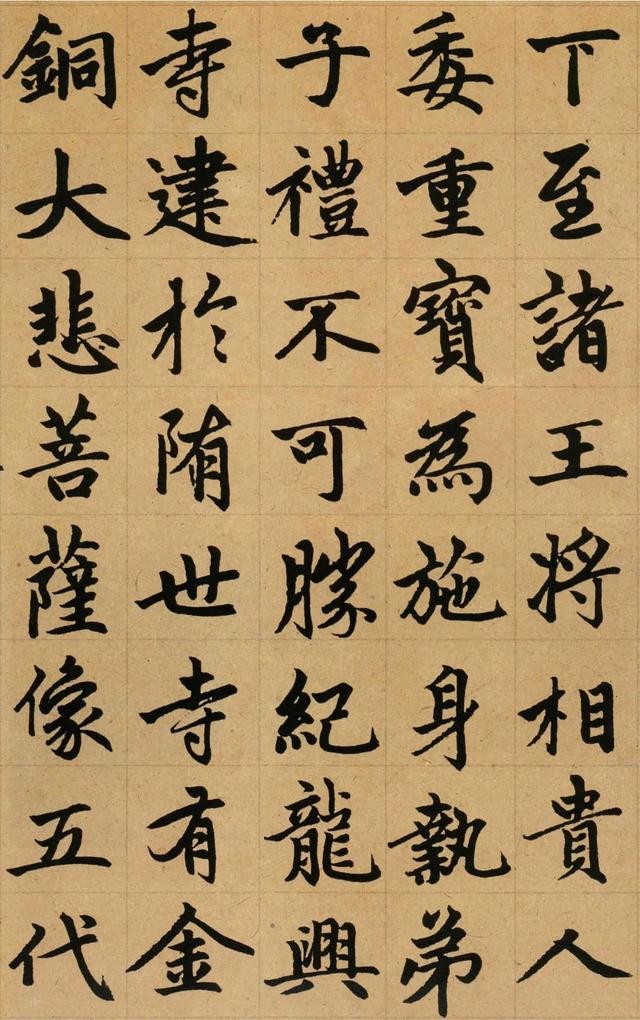 下至諸王將相貴人
委重寶為施身執弟
子禮不可勝紀龍興
寺建於隋世寺有金
銅大悲菩薩像五代